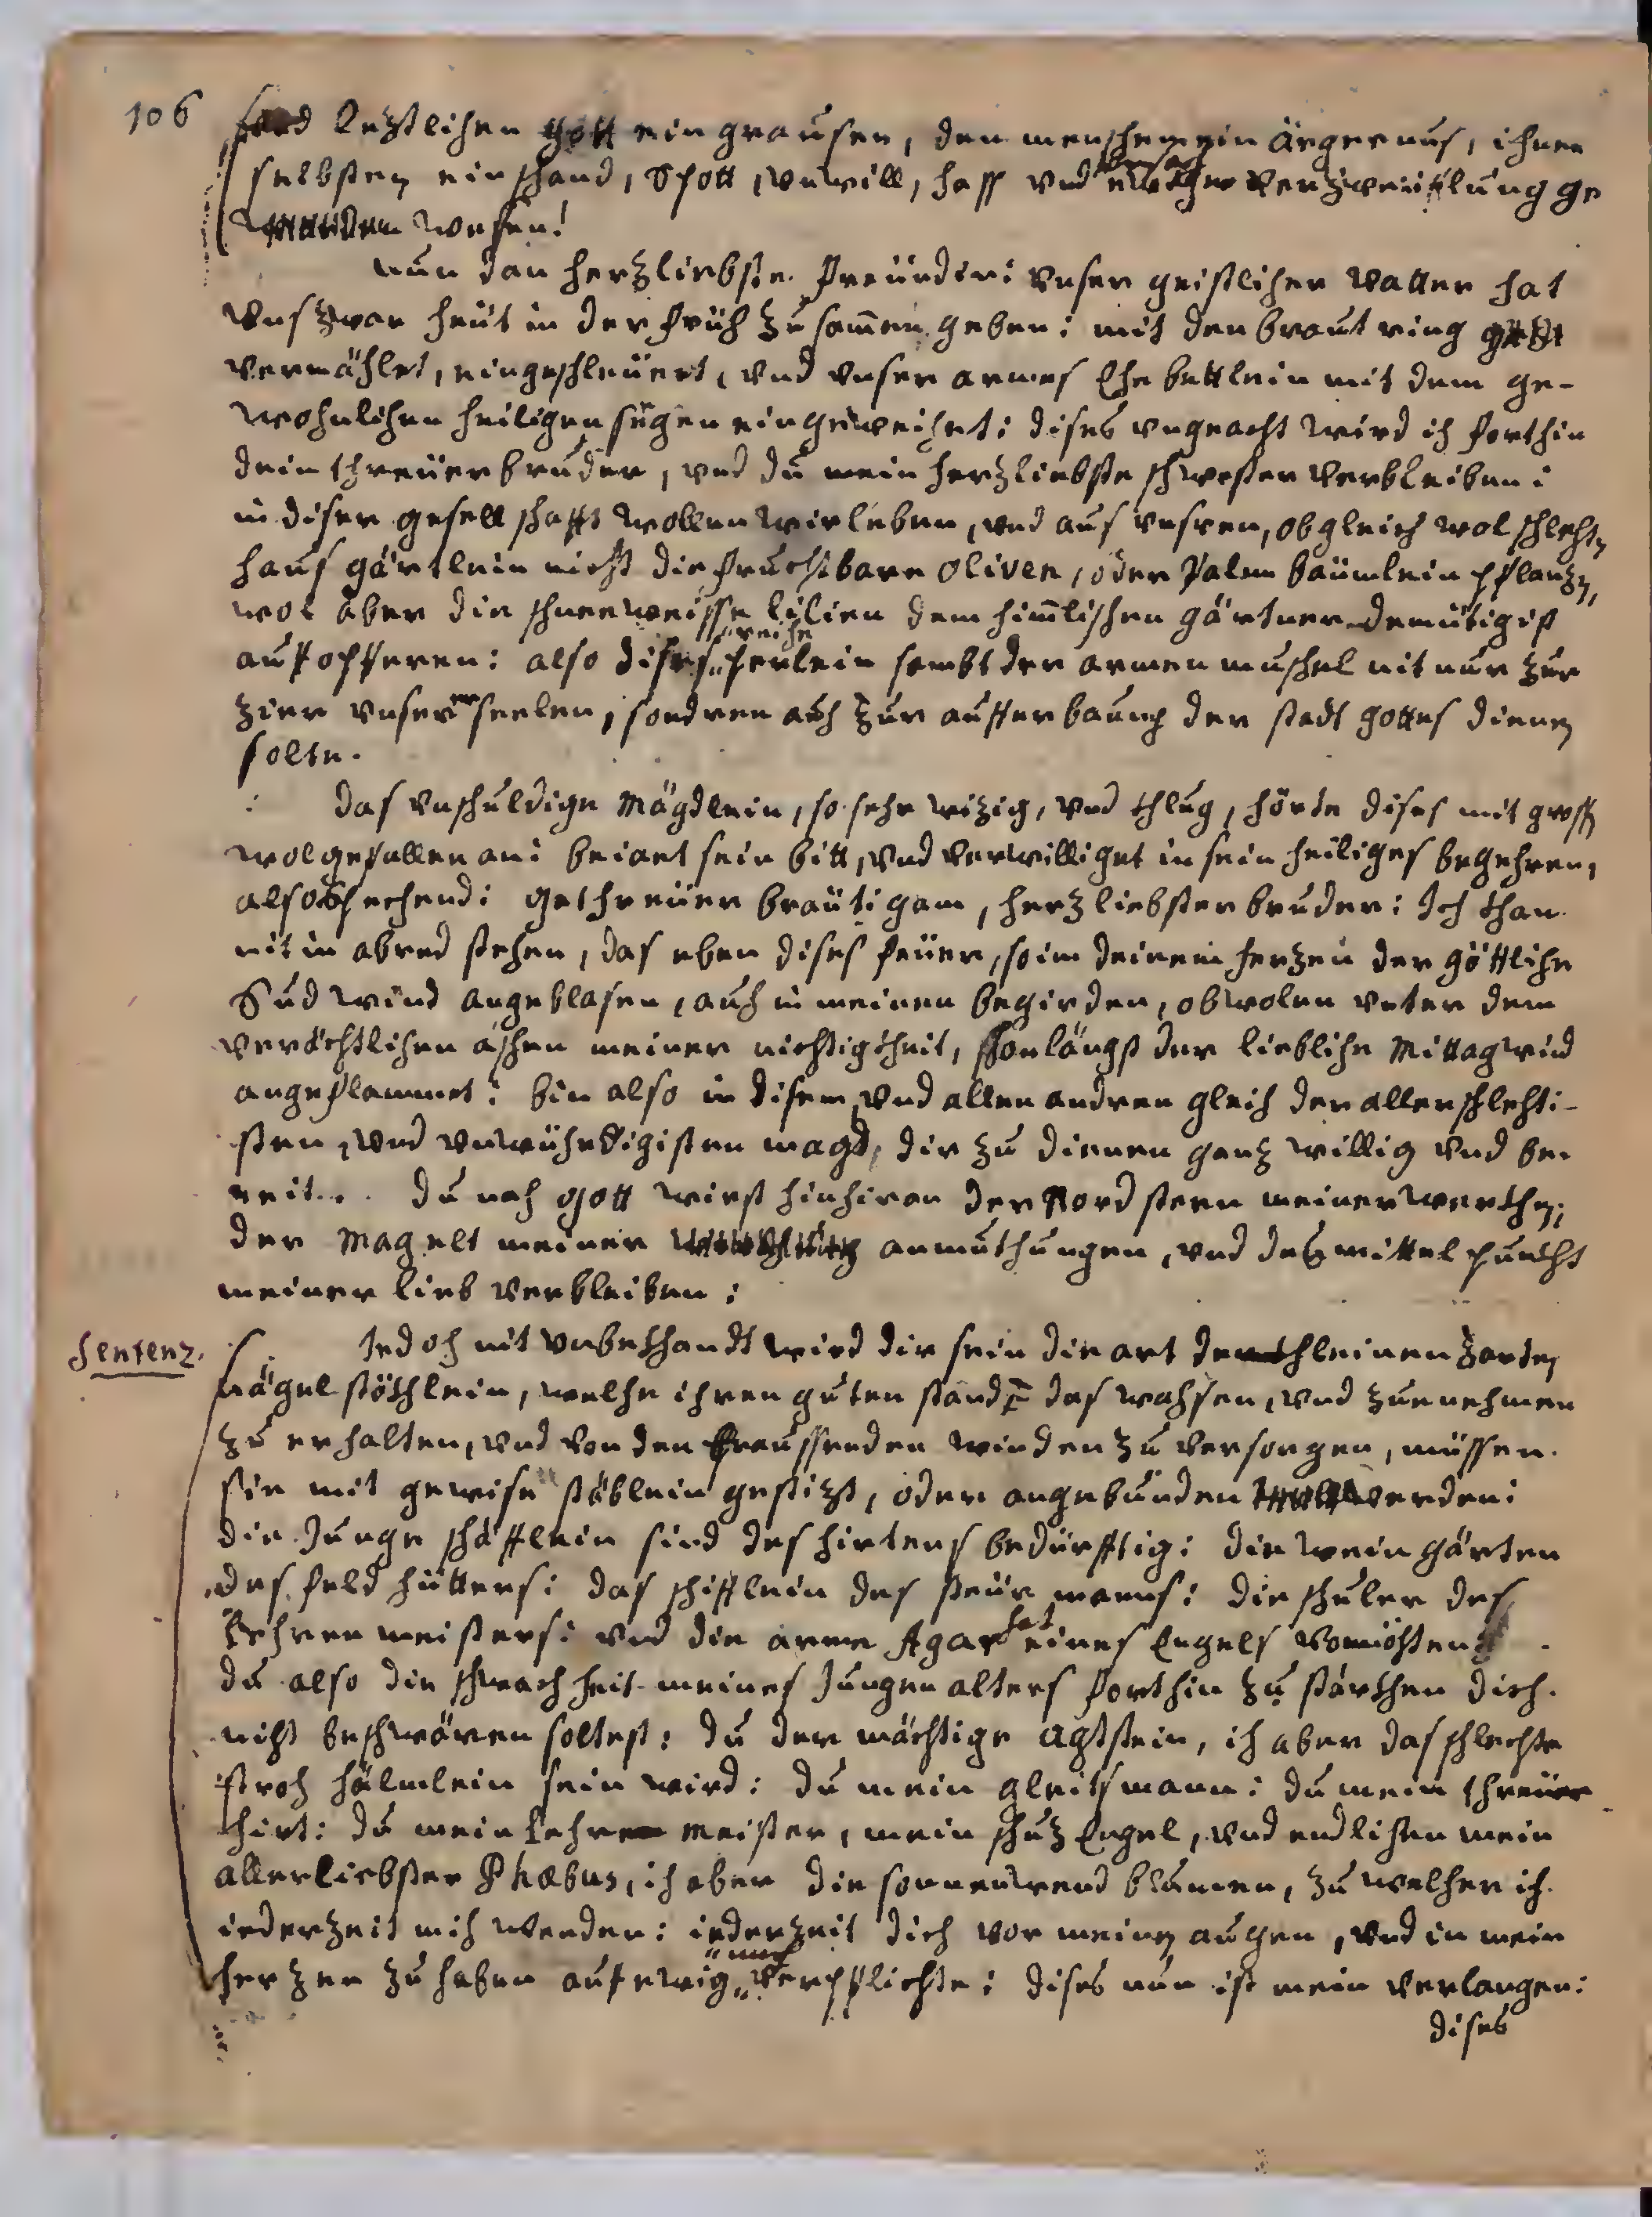 106
sind lezstlichen Gott ein grausen, den menschen ein ärgernus, ihnen
selbsten ein schand, Spott, unwill, hass und verzweiflung ge
wesen!
nun dan herzliebste freündin: unser geistlicher vatter hat
uns zwar heüt in der früh zusam̄en geben: mit den braut ring
vermählet, eingeschleüert, und unser armes Ehebettlein mit dem ge-
wohnlichen heiligen sëgen eingeweihet: dises ungeacht wird ich forthin
dein threüer bruder, und du mein herzliebste schwester verbleiben:
in diser gesellschafft wollen wir leben, und aus unsren, obgleich wol schlechtn
haus gärtlein nicht die fruchtbare oliven, oder Palm baümlein pflanzn,
wol aber die schneeweisse lilien dem him̄lischen gärtner demütigist
aufopfferen: also dises reiche perlein sambt der armen muschel nit nur zur
zier unserer seelen, sondren auch zur aufferbauung der stadt gottes dienen
solte.
das unschuldige Mägdlein, so sehr wizig, und khlug, hörte dises mit grossn
wolgefallen an: beiaet sein bitt, und verwilliget in sein heiliges begehren,
also sprechend: getreüer breütigam, herzliebster bruder: Ich khan
nit in abred stehen, das eben dises feüer, so im deinem herzen der göttliche
Sud wind angeblasen, auch in meinen begirden, obwolen unter dem
verächtlichen aschen meiner nichtigkheit, schon längst der liebliche Mittagwind
angeflammet: bin also in disem, und allen andren gleich der allerschlechti-
sten, und unwührdigisten magd, dir zu dienen ganz willig und be-
reit.. du nach gott wirst hinfiran der Nordstern meiner werkhen;
der Magelt meiner anmuthungen, und das mittel punckht
meiner lieb verbleiben:
Sentenz.
Iedoch nit unbekhandt wird dir sein die art der khleinen zarten
nägel stökhlein, welche ihren guten stand: das wachsen, und zuenehmen
zu erhalten, und von den braussenden winden zu versorgen, müssen
sie mit gewise stäblein gestizt, oder angebunden werden:
die Junge schäfflein sind des hirtens bedürfftig: die weingärten
des feldhütters: das schifflein des steür manns: die schuler des
lehren meisters: und die arme Agar hat eines Engels vonnöthen:
du also die schwachheit meines Jungen alters forthin zu stärkhen dich
nicht beschwären soltest: du der mächtige agtstein, ich aber das schlechte
stroh hälmlein sein wird: du mein gleitsmann: du mein threüer
hirt: du mein lehr meister, mein schuz Engel, und endlichen mein
allerliebster Phæbus, ich aber die sonnenwend blumen, zu welcher ich
iederzeit mich wenden: iederzeit dich vor meinen augen, und in mein
herzen zu haben auf ewig mich verpflichte: dises nun ist mein verlangen:
dises